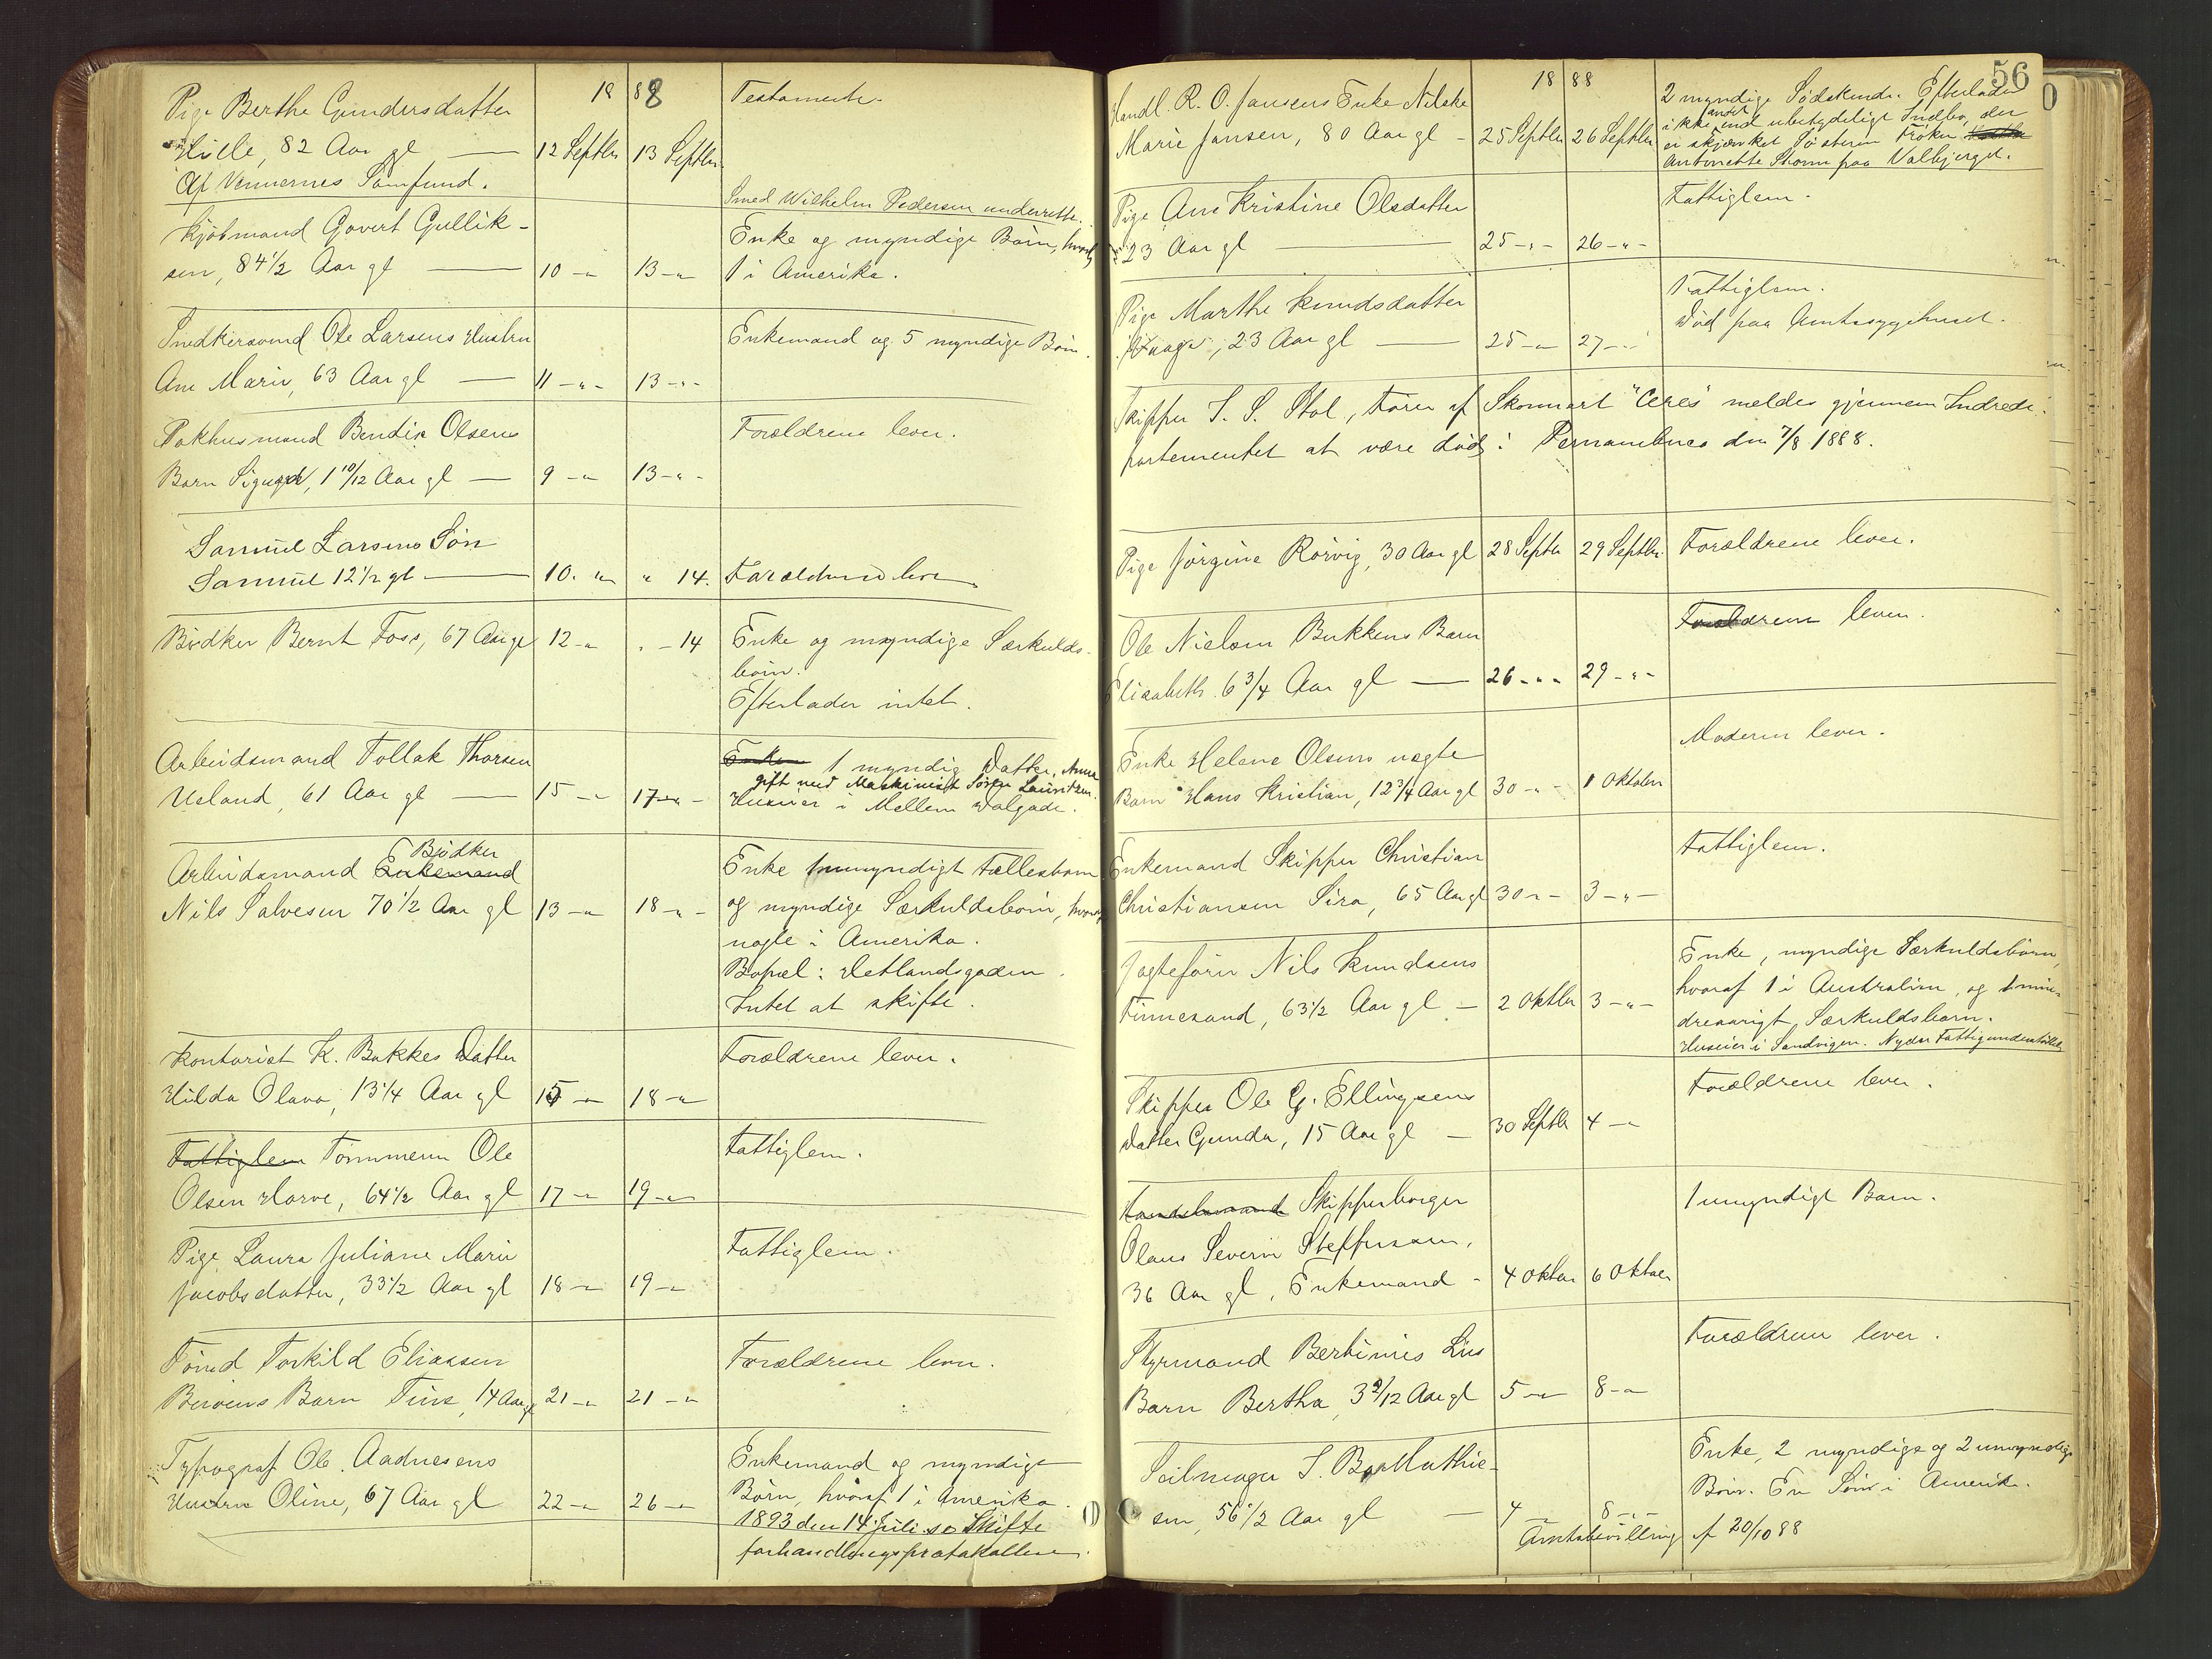 1888
Pige Berthe Gundersdatter
Hille, 82 Aar gl — 12 Septbr 13 Septbr. Testamente.
Af Vennernes Samfund.
Smed Wilhelm Pedersen underrette.
Kjøbmand Govert Gullik-
sen, 84 1/2 Aar gl — 10 -"- 13 -"- Enke og myndige Børn, hvoraf
1 i Amerika.
Snedkersvend Ole Larsens Hustru
Ane Marie, 63 Aar gl — 11 -"- 13 -"- Enkemand og 5 myndige Børn.
Pakhusmand Bendix Olsens
Barn Sigurd, 1 10/12 Aar gl — 9 -"- 13 -"- Forældrene lever.
Samuel Larsens Søn
Samuel 12 1/2 gl — 10. " " 14. Forældrene lever.
Bødker Bernt Foss, 67 Aar gl 12 -"- " - 14 Enke og myndige Særkulds-
børn.
Efterlader intet.
Arbeidsmand Tollak Thorsen
Ueland, 61 Aar gl — 15 -"- 17 -"- Enke 1 myndig Datter, Anna
gift med Maskinist Søren Lauritzen.
Huseier i Mellem Dalgade.
Bødker
Arbeidsmand Enkemand
Nils Salvesen 70 1/2 Aar gl 13 -"- 18 -"- Enke 1 umyndigt Fællesbarn
og myndige Særkuldsbørn, hvoraf
nogle i Amerika.
Bopæl: Hetlandsgaden.
Intet at skifte.
Kontorist K. Bakkes Datter
Hilda Olava, 13 1/4 Aar gl 15 -"- 18 -"- Forældrene lever.
Fattiglem Tømmerm Ole
Olsen Harve, 64 1/2 Aar gl 17 -"- 19 -"- Fattiglem.
Pige Laura Juliane Marie
Jacobsdatter, 33 1/2 Aar gl 18 -"- 19 -"- Fattiglem.
Tømd Torkild Eliassen
Barn Tine, 14 Aar gl 21 -"- 21 -"- Forældrene lever.
Typograf Ole Aadnesens
Hustru Oline, 67 Aar gl 22 -"- 26 -"- Enkemand og myndige
Børn, hvoraf 1 i Amerika.
1893 den 14 Juli se Skifte
forhandlingsprotokollen.
56
1888
Handl. R. O. Jansens Enke Nilske
Marie Jansen, 80 Aar gl - 25 Septbr 26 Septbr 2 myndige Sødskende. Efterlader
ikke andet end ubetydeligt Indbo, der
er skjænket Søsteren Frøken
Antonette Storm paa Valbjerget.
Pige Ane Kristine Olsdatter
23 Aar gl — 25 -"- 26 -"- Fattiglem.
Pige Marthe Knudsdatter
23 Aar gl — 25 -"- 27 -"- Fattiglem.
Død paa Amtssygehuset.
Skipper S. S. Stol, Fører af Skonnert "Ceres" meldes gjennem Indrede-
partementet at være død i Pernambuco den 7/8 1888.
Pige Jørgine Rørvig, 30 Aar gl 28 Septbr 29 Septbr. Forældrene lever.
Ole Nielsen Bukkens Barn
Elisabeth 6 3/4 Aar gl — 26 -"- 29 -"- Forældrene lever.
Enke Helene Olsens uægte
Barn Hans Kristian, 12 3/4 Aar gl 30 -"- 1 Oktober Moderen lever.
Enkemand Skipper Christian
Christiansen Sira, 65 Aar gl 30 -"- 3 -"- Fattiglem.
Jagtefører Nils Knudsens
Finnesand, 63 1/2 Aar gl — 2 Oktbr 3 -"- Enke, myndige Særkuldsbørn,
hvoraf 1 i Australien, og 1 min-
dreaarigt Særkuldsbarn.
Huseier i Sandvigen. Nyder Fattigunderstøttelse
Skipper Ole G. Ellingsens
Datter Gunda, 15 Aar gl — 30 Septbr 4 -"- Forældrene lever.
Handelsmand Skipperborger
Olaus Severin Steffensen,
36 Aar gl, Enkemand - 4 Oktbr 6 Oktber 1 umyndigt Barn.
Styrmand Bertinius Lies
Barn Bertha, 3 2/12 Aar gl 5 -"- 8 -"- Forældrene lever.
Seilmager S. B. Mathie-
sen, 56 1/2 Aar gl — 4 - 8 -"- Enke, 2 myndige og 2 umyndige
Børn. En Søn i Amerika.
Amtsbevilling af 20/10 88